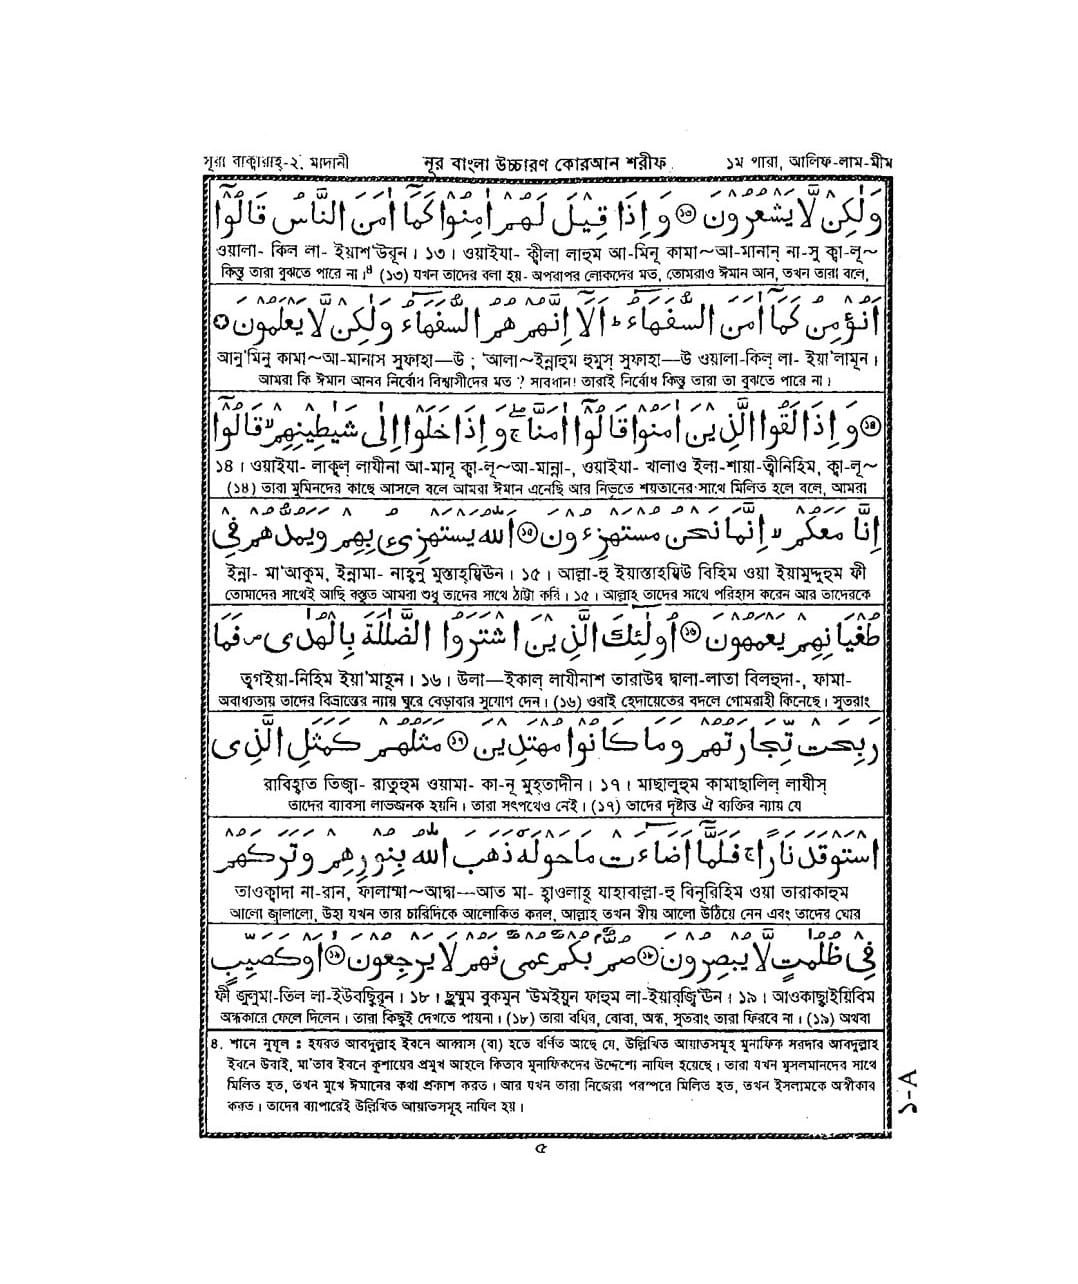 সূরা বাক্বারাহ্-২. মাদানী নূর বাংলা উচ্চারণ কোরআন শরীফ ১ম পারা, আলিফ-লাম-মীম
وَلٰكِنْ لَّا يَشْعُرُوْنَ ۝١٢ وَاِذَا قِيْلَ لَهُمْ اٰمِنُوْا كَمَآ اٰمَنَ النَّاسُ قَالُوْٓا
ওয়ালা- কিল লা- ইয়াশ'উরূন। ১৩। ওয়াইযা- ক্বীলা লাহুম আ-মিনূ কামা~আ-মানান্ না-সু ক্বা-লূ~
কিন্তু তারা বুঝতে পারে না।⁴ (১৩) যখন তাদের বলা হয়- অপরাপর লোকদের মত, তোমরাও ঈমান আন, তখন তারা বলে,
اَنُؤْمِنُ كَمَآ اٰمَنَ السُّفَهَآءُ ؕ اَلَآ اِنَّهُمْ هُمُ السُّفَهَآءُ وَلٰكِنْ لَّا يَعْلَمُوْنَ
আনু'মিনু কামা~আ-মানাস সুফাহা—উ ; 'আলা~ইন্নাহুম হুমুস্ সুফাহা—উ ওয়ালা-কিল্ লা- ইয়া'লামূন।
আমরা কি ঈমান আনব নির্বোধ বিশ্বাসীদের মত ? সাবধান! তারাই নির্বোধ কিন্তু তারা তা বুঝতে পারে না।
۝١٤ وَاِذَا لَقُوا الَّذِيْنَ اٰمَنُوْا قَالُوْٓا اٰمَنَّا ۚ وَاِذَا خَلَوْا اِلٰى شَيٰطِيْنِهِمْ ۙ قَالُوْٓا
১৪। ওয়াইযা- লাকুল্ লাযীনা আ-মানূ ক্বা-লূ~আ-মান্না-, ওয়াইযা- খালাও ইলা-শায়া-ত্বীনিহিম, ক্বা-লূ~
(১৪) তারা মুমিনদের কাছে আসলে বলে আমরা ঈমান এনেছি আর নিভৃতে শয়তানের সাথে মিলিত হলে বলে, আমরা
اِنَّا مَعَكُمْ ۙ اِنَّمَا نَحْنُ مُسْتَهْزِءُوْنَ ۝١٥ اَللّٰهُ يَسْتَهْزِئُ بِهِمْ وَيَمُدُّهُمْ فِيْ
ইন্না- মা'আকুম, ইন্নামা- নাহ্নু মুস্তাহ্যিউন। ১৫। আল্লা-হু ইয়াস্তাহ্যিউ বিহিম ওয়া ইয়ামুদ্দুহুম ফী
তোমাদের সাথেই আছি বস্তুত আমরা শুধু তাদের সাথে ঠাট্টা করি। ১৫। আল্লাহ তাদের সাথে পরিহাস করেন আর তাদেরকে
طُغْيَانِهِمْ يَعْمَهُوْنَ ۝١٦ اُولٰٓئِكَ الَّذِيْنَ اشْتَرَوُا الضَّلٰلَةَ بِالْهُدٰى ۖ فَمَا
তুগইয়া-নিহিম ইয়া'মাহূন। ১৬। উলা—ইকাল্ লাযীনাশ তারাউদ্ব দ্বালা-লাতা বিলহুদা-, ফামা-
অবাধ্যতায় তাদের বিভ্রান্তের ন্যায় ঘুরে বেড়াবার সুযোগ দেন। (১৬) ওরাই হেদায়েতের বদলে গোমরাহী কিনেছে। সুতরাং
رَبِحَتْ تِّجَارَتُهُمْ وَمَا كَانُوْا مُهْتَدِيْنَ ۝١٧ مَثَلُهُمْ كَمَثَلِ الَّذِى
রাবিহ্বাত তিজ্বা- রাতুহুম ওয়ামা- কা-নূ মুহ্তাদীন। ১৭। মাছালুহুম কামাছালিল্ লাযীস্
তাদের ব্যাবসা লাভজনক হয়নি। তারা সৎপথেও নেই। (১৭) তাদের দৃষ্টান্ত ঐ ব্যক্তির ন্যায় যে
اسْتَوْقَدَ نَارًا ۚ فَلَمَّآ اَضَآءَتْ مَا حَوْلَهٗ ذَهَبَ اللّٰهُ بِنُوْرِهِمْ وَتَرَكَهُمْ
তাওক্বাদা না-রান, ফালাম্মা~আদ্বা—আত মা- হাওলাহূ যাহাবাল্লা-হু বিনূরিহিম ওয়া তারাকাহুম
আলো জ্বালালো, উহা যখন তার চারিদিকে আলোকিত করল, আল্লাহ তখন স্বীয় আলো উঠিয়ে নেন এবং তাদের ঘোর
فِىْ ظُلُمٰتٍ لَّا يُبْصِرُوْنَ ۝١٨ صُمٌّۢ بُكْمٌ عُمْىٌ فَهُمْ لَا يَرْجِعُوْنَ ۝١٩ اَوْ كَصَيِّبٍ
ফী জুলুমা-তিল লা-ইউবছিরূন। ১৮। ছুম্মুম বুকমুন 'উমইয়ুন ফাহুম লা-ইয়ারজ্বি'ঊন। ১৯। আওকাছ্বাইয়িবিম
অন্ধকারে ফেলে দিলেন। তারা কিছুই দেখতে পায়না। (১৮) তারা বধির, বোবা, অন্ধ, সুতরাং তারা ফিরবে না। (১৯) অথবা
৪. শানে নুযূল : হযরত আবদুল্লাহ ইবনে আব্বাস (রা) হতে বর্ণিত আছে যে, উল্লিখিত আয়াতসমূহ মুনাফিক সরদার আবদুল্লাহ
ইবনে উবাই, মা'তাব ইবনে কুশায়ের প্রমুখ আহলে কিতাব মুনাফিকদের উদ্দেশ্যে নাযিল হয়েছে। তারা যখন মুসলমানদের সাথে
মিলিত হত, তখন মুখে ঈমানের কথা প্রকাশ করত। আর যখন তারা নিজেরা পরস্পরে মিলিত হত, তখন ইসলামকে অস্বীকার
করত। তাদের ব্যাপারেই উল্লিখিত আয়াতসমূহ নাযিল হয়।
১-A
৫